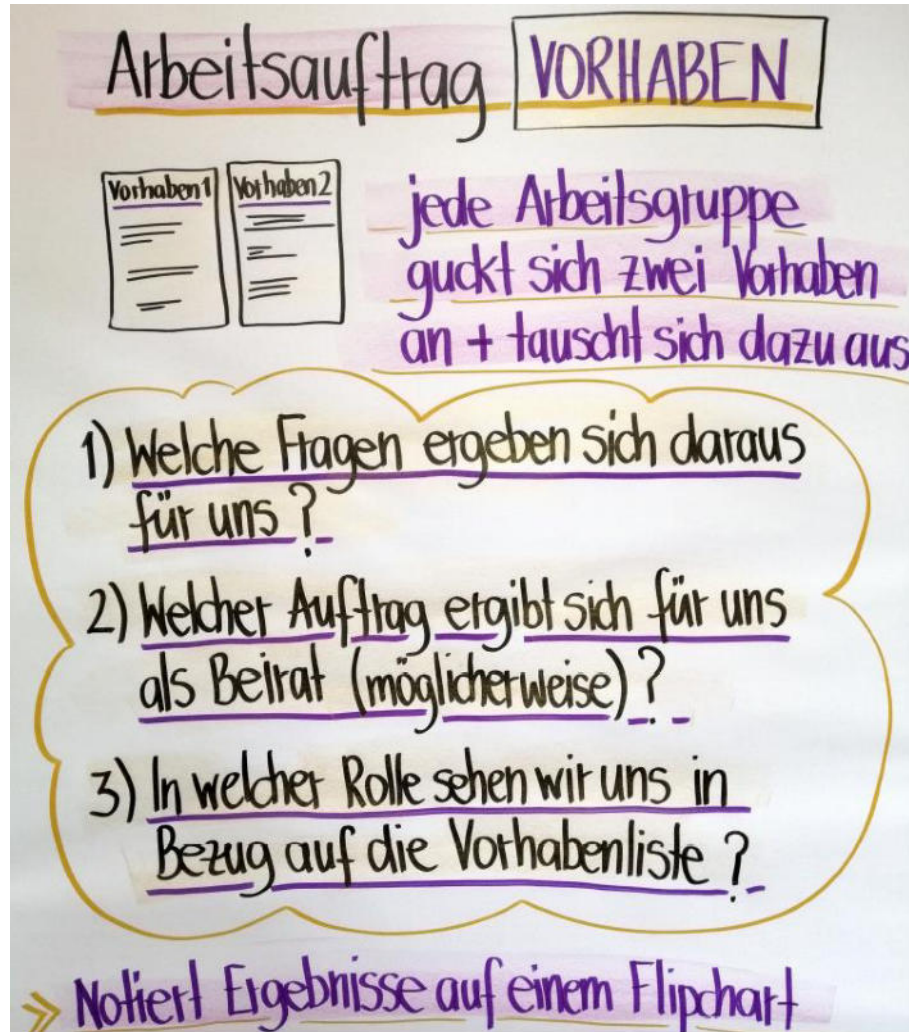 Arbeitsauftrag VORHABEN
Vorhaben 1 Vorhaben 2
jede Arbeitsgruppe
guckt sich zwei Vorhaben
an + tauscht sich dazu aus
1) Welche Fragen ergeben sich daraus
für uns?
2) Welcher Auftrag ergibt sich für uns
als Beirat (möglicherweise)?
3) In welcher Rolle sehen wir uns in
Bezug auf die Vorhabenliste?
» Notiert Ergebnisse auf einem Flipchart